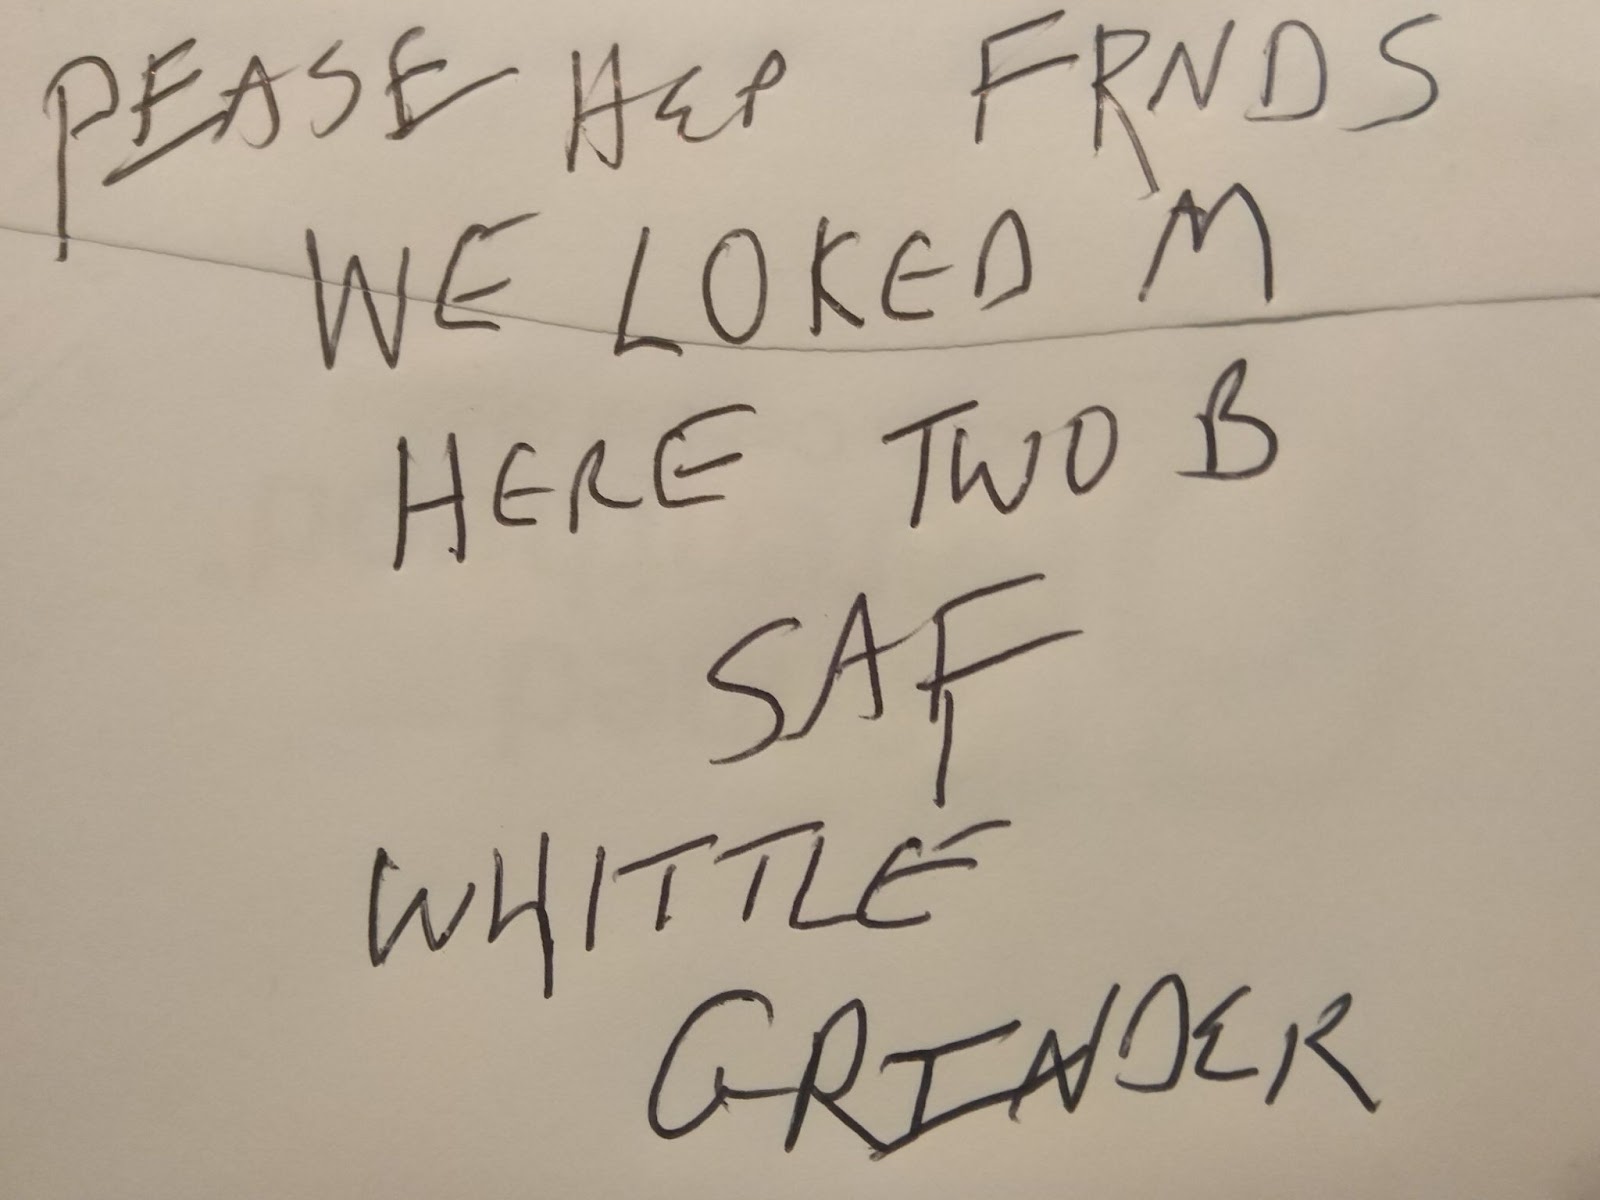 PEASE HEP FRNDS
WE LOKED M
HERE TWO B
SAF
WHITTLE
GRINDER